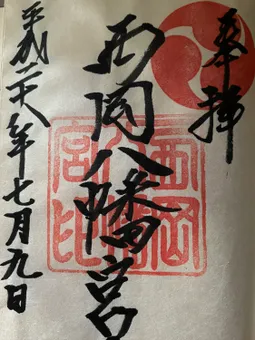 奉拝
西岡八幡宮
平成二十八年七月九日
西岡
八幡
宮印